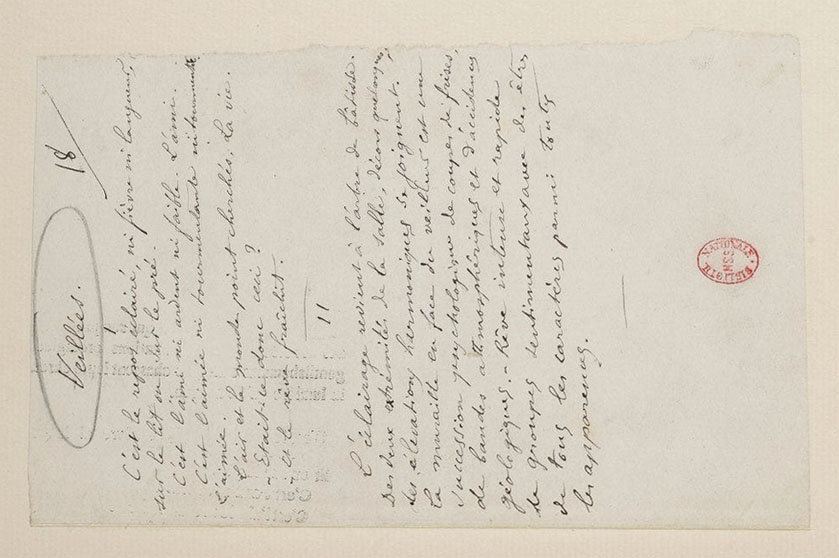 Veillées.
18
C'est le repos éclairé, ni fièvre ni langueur,
sur le lit ou sur le pré.
C'est l'ami ni ardent ni faible. L'ami.
C'est l'aimée ni tourmentante ni tourmentée.
L'aimée.
L'air et le monde point cherchés. La vie.
– Etait-ce donc ceci ?
– Et le rêve fraîchit.
II
L'éclairage revient à l'arbre de bâtisse.
Des deux extrémités de la salle, décors quelconques,
des élévations harmoniques se joignent.
La muraille en face du veilleur est une
succession psychologique de coupes de frises,
de bandes atmosphériques et d'accidences
géologiques. – Rêve intense et rapide
de groupes sentimentaux avec des êtres
de tous les caractères parmi toutes
les apparences.
NATIONALE
MSS